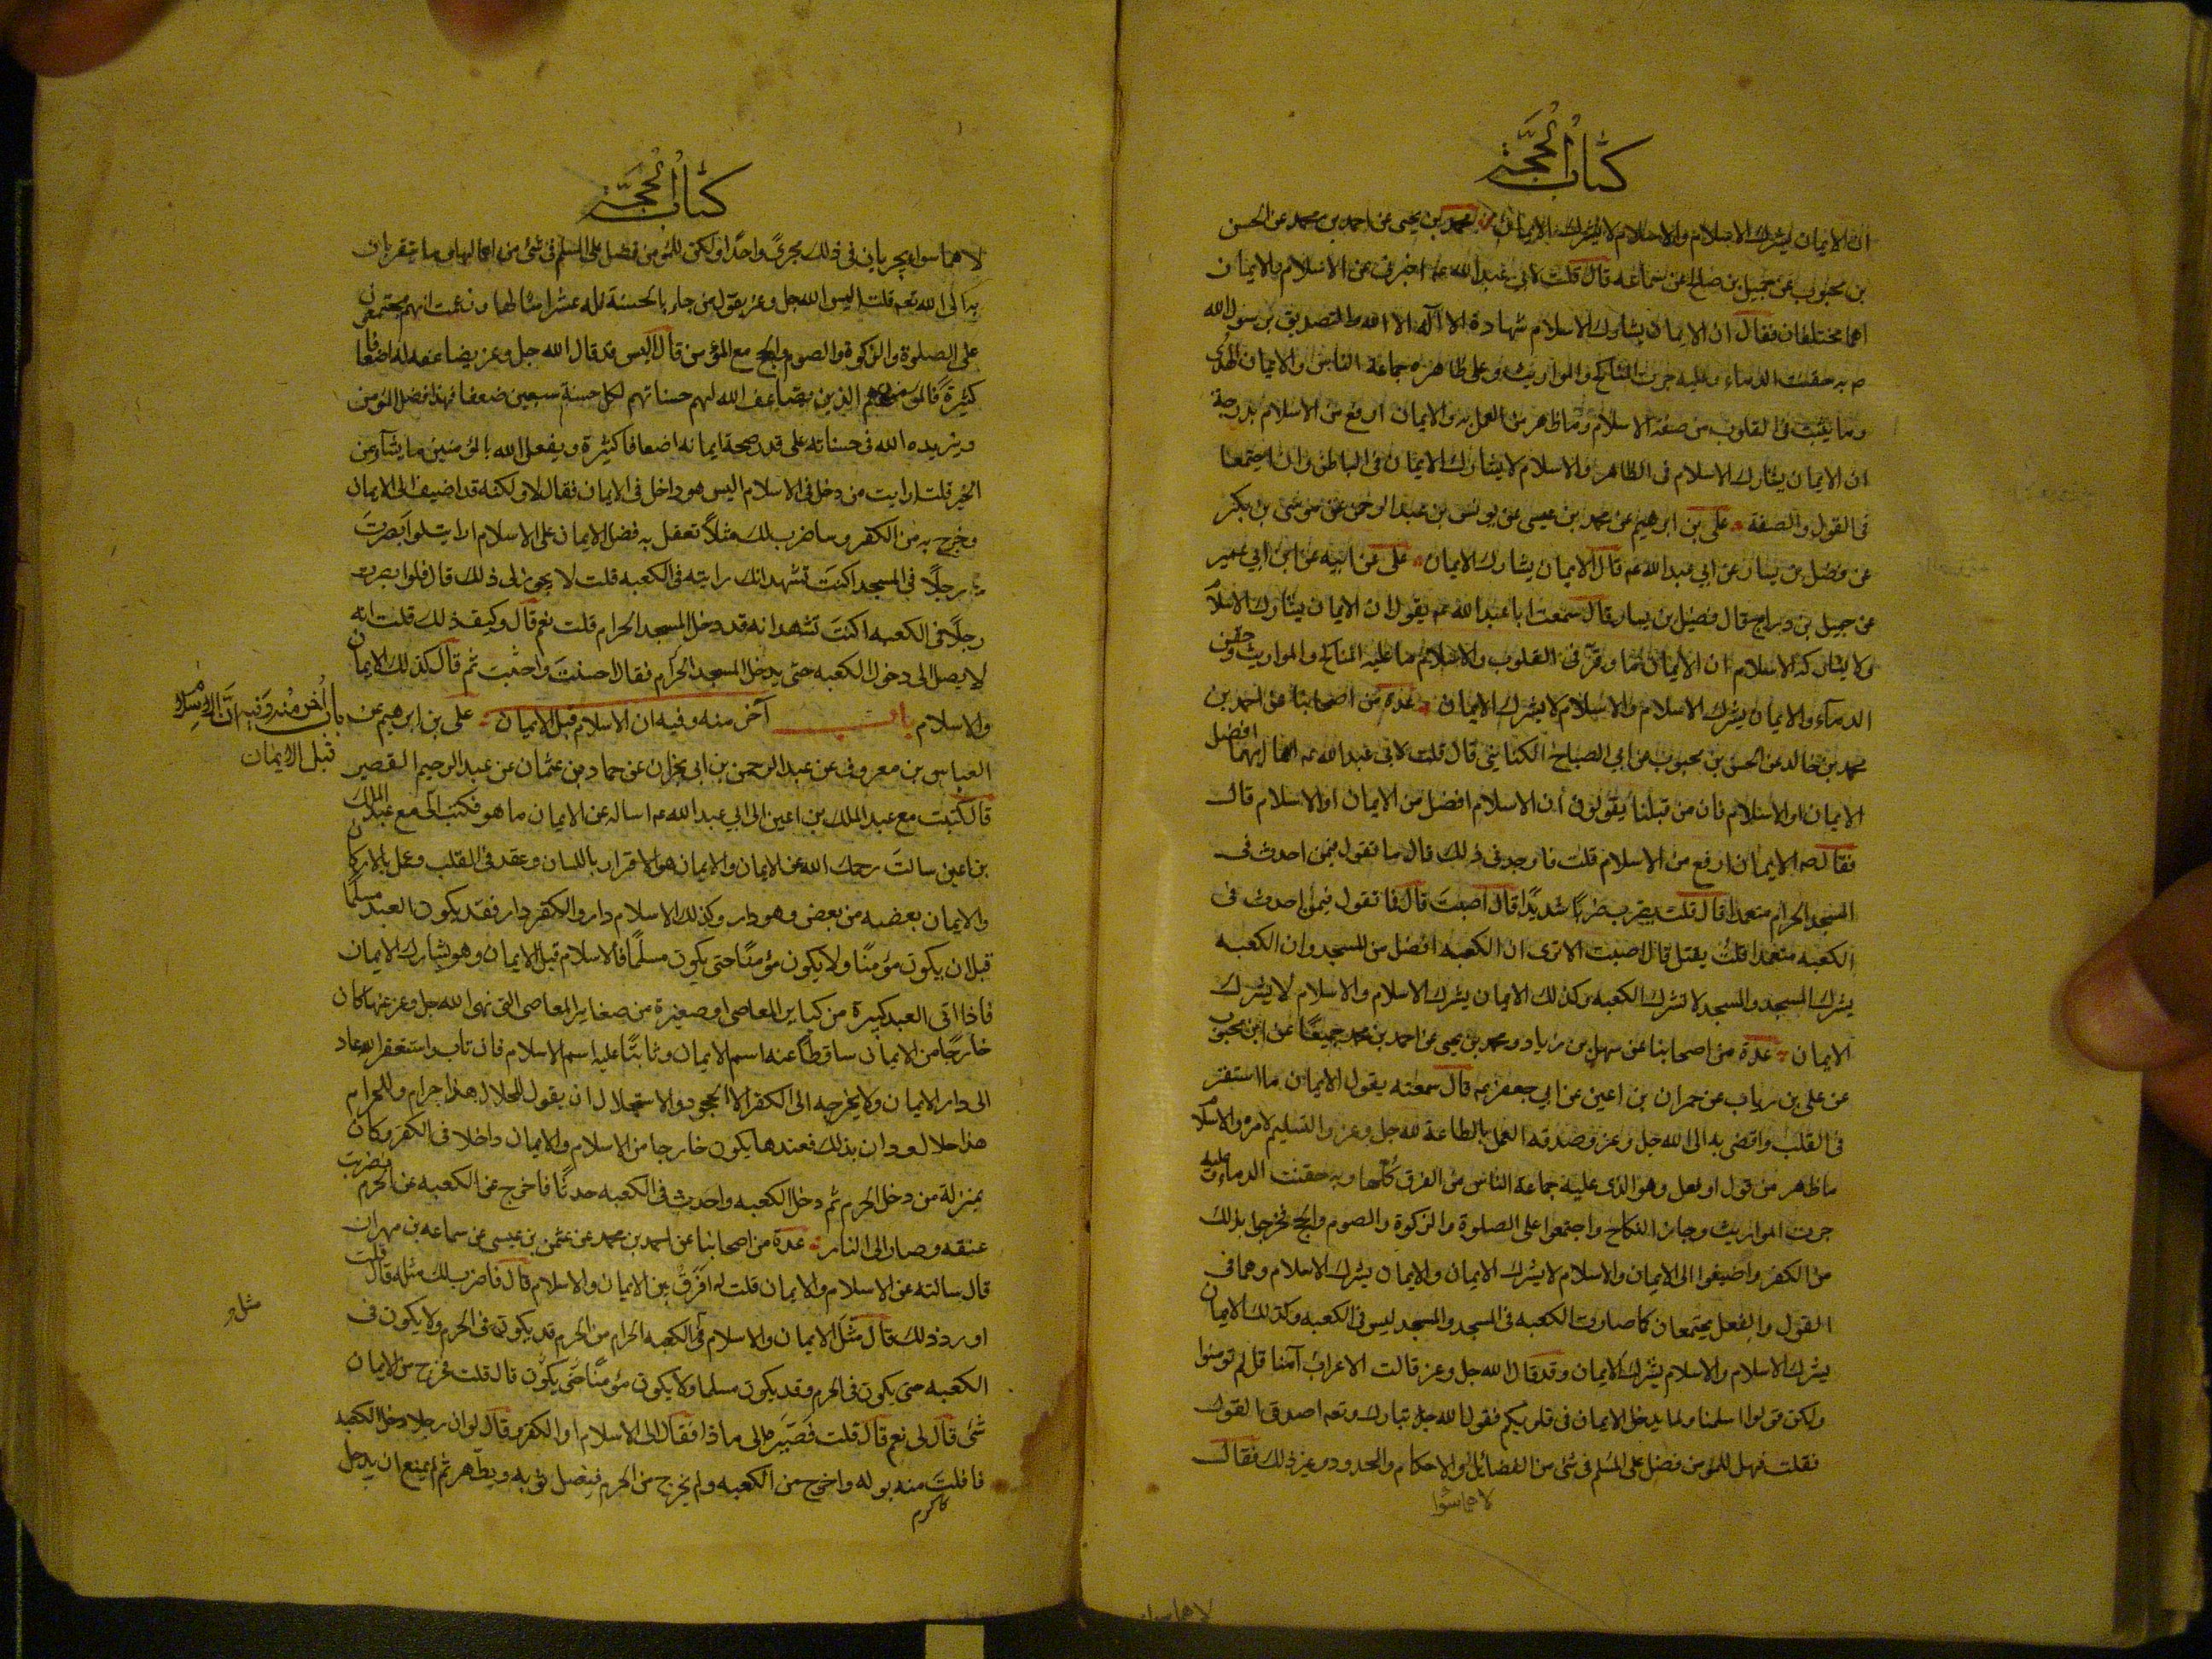 كتاب الحجة
ان الايمان يشرك الاسلام والاسلام لا يشرك الايمان محمد بن يحيى عن احمد بن محمد عن الحسن
بن محبوب عن جميل بن صالح عن سماعه قال قلت لابي عبد الله عم اخبرني عن الاسلام والايمان
اهما مختلفان فقال ان الايمان يشارك الاسلام شهادة الا اله الا الله والتصديق برسول الله
ص به حقنت الدماء وعليه جرت المناكح والمواريث وعلى ظاهره جماعة الناس والايمان الهدى
وما يثبت في القلوب من صفة الاسلام وما ظهر من العمل به والايمان ارفع من الاسلام بدرجة
ان الايمان يشارك الاسلام في الظاهر والاسلام لا يشارك الايمان في الباطن وان اجتمعا
في القول والصفة علي بن ابرهيم عن محمد بن عيسى عن يونس بن عبد الرحمن عن موسى بن بكر
عن فضيل بن يسار عن ابي عبد الله عم قال الايمان يشارك الايمان علي عن ابيه عن ابن ابي عمير
عن جميل بن دراج قال فضيل بن يسار قال سمعت ابا عبد الله عم يقول ان الايمان يشارك الاسلام
ولا يشاركه الاسلام ان الايمان ما وقر في القلوب والاسلام ما عليه المناكح والمواريث وحقن
الدماء والايمان يشرك الاسلام والاسلام لا يشرك الايمان عدة من اصحابنا عن احمد بن
محمد بن خالد عن الحسن بن محبوب عن ابي الصباح الكناني قال قلت لابي عبد الله عم ايهما افضل
الايمان او الاسلام فان من قبلنا يقولون ان الاسلام افضل من الايمان او الاسلام قال
فقال الايمان ارفع من الاسلام قلت فاوجدني ذلك قال ما تقول فيمن احدث في
المسجد الحرام متعمدا قال قلت يضرب ضربا شديدا قال اصبت قال فما تقول فيمن احدث في
الكعبه متعمدا قلت يقتل قال اصبت الا ترى ان الكعبه افضل من المسجد وان الكعبه
يشرك المسجد والمسجد لا تشرك الكعبه وكذلك الايمان يشرك الاسلام والاسلام لا يشرك
الايمان عدة من اصحابنا عن سهل بن زياد ومحمد بن يحيى عن احمد بن محمد جميعا عن ابن محبوب
عن علي بن رياب عن حمران بن اعين عن ابي جعفر عم قال سمعته يقول الايمان ما استقر
في القلب وافضى به الى الله جل وعز وصدقه العمل بالطاعة لله جل وعز والتسليم لامره والاسلام
ما ظهر من قول او فعل وهو الذي عليه جماعة الناس من الفرق كلها وبه حقنت الدماء وعليه
جرت المواريث وجاز النكاح واجتمعوا على الصلوة والزكوة والصوم والحج فخرجوا بذلك
من الكفر واضيفوا الى الايمان والاسلام لا يشرك الايمان والايمان يشرك الاسلام وهما في
القول والفعل يجتمعان كما صارت الكعبه في المسجد والمسجد ليس في الكعبه وكذلك الايمان
يشرك الاسلام والاسلام لا يشرك الايمان وقد قال الله جل وعز قالت الاعراب آمنا قل لم تومنوا
ولكن قولوا اسلمنا ولما يدخل الايمان في قلوبكم فقول الله جل تبارك وتعم اصدق القول
فقلت فهل للمؤمن فضل على المسلم في شى من الفضائل والاحكام والحدود وغير ذلك فقال
لا هما سوا
كتاب الحجة
لا هما سواء يجريان في ذلك مجرى واحدا ولكن للمؤمن فضل على المسلم في شئ من اعمالهما وما يتقربان
به الى الله تعم قلت اليس الله جل وعز يقول من جاء بالحسنة فله عشر امثالها وزعمت انهم مجتمعون
على الصلوة والزكوة والصوم والحج مع المؤمن قال اليس قد قال الله جل وعز يضاعفه له اضعافا
كثيرة فالمؤمنون هم الذين يضاعف الله لهم حسناتهم لكل حسنة سبعين ضعفا فهذا فضل المؤمن
ويزيده الله في حسناته على قدر صحة ايمانه اضعافا كثيرة ويفعل الله بالمؤمنين ما يشآء من
الخير قلت ارايت من دخل في الاسلام اليس هو داخل في الايمان فقال لا ولكنه قد اضيف الى الايمان
وخرج به من الكفر وساضرب لك مثلا تعقل به فضل الايمان على الاسلام ارايت لو ابصرت
رجلا في المسجد اكنت تشهد انك رايته في الكعبه قلت لا يجوز لي ذلك قال فلو ابصرت
رجلا في الكعبه اكنت تشهد انه قد دخل المسجد الحرام قلت نعم قال وكيف ذلك قلت انه
لا يصل الى دخول الكعبه حتى يدخل المسجد الحرام فقال احسنت واصبت ثم قال كذلك الايمان
والاسلام باب آخر منه وفيه ان الاسلام قبل الايمان علي بن ابرهيم عن
باب آخر منه وفيه ان الاسلام
قبل الايمان
العباس بن معروف عن عبد الرحمن بن ابي نجران عن حماد بن عثمان عن عبد الرحيم القصير
قال كتبت مع عبد الملك بن اعين الى ابي عبد الله عم اساله عن الايمان ما هو فكتب الي مع عبد الملك
بن اعين سالت رحمك الله عن الايمان والايمان هو الاقرار باللسان وعقد في القلب وعمل بالاركان
والايمان بعضه من بعض وهو دار وكذلك الاسلام دار والكفر دار فقد يكون العبد مسلما
قبل ان يكون مؤمنا ولا يكون مؤمنا حتى يكون مسلما فالاسلام قبل الايمان وهو يشارك الايمان
فاذا اتى العبد كبيرة من كباير المعاصي او صغيرة من صغاير المعاصي التي نهى الله جل وعز عنها كان
خارجا من الايمان ساقطا عنه اسم الايمان وثابتا عليه اسم الاسلام فان تاب واستغفر الله عاد
الى دار الايمان ولا يخرجه الى الكفر الا الجحود والاستحلال ان يقول للحلال هذا حرام وللحرام
هذا حلال ودان بذلك فعندها يكون خارجا من الاسلام والايمان داخلا في الكفر وكان
بمنزلة من دخل الحرم ثم دخل الكعبه واحدث في الكعبه حدثا فاخرج عن الكعبه عن الحرم فضربت
عنقه وصار الى النار عدة من اصحابنا عن احمد بن محمد عن عثمن بن عيسى عن سماعه بن مهران
قال سالته عن الاسلام والايمان قلت له افرق بين الايمان والاسلام قال فاضرب لك مثله قال قلت
اورد ذلك قال مثل الايمان والاسلام مثل الكعبه الحرام من الحرم قد يكون في الحرم ولا يكون في
الكعبه حتى يكون في الحرم وقد يكون مسلما ولا يكون مؤمنا حتى يكون قال قلت فخرج من الايمان
شئ قال لي نعم قال قلت فصيره الى ماذا فقال الى الاسلام او الكفر وقال لو ان رجلا دخل الكعبه
فافلت منه بوله واخرج من الكعبه ولم يخرج من الحرم فيغسل ثوبه ويطهر ثم لم يمنع ان يدخل